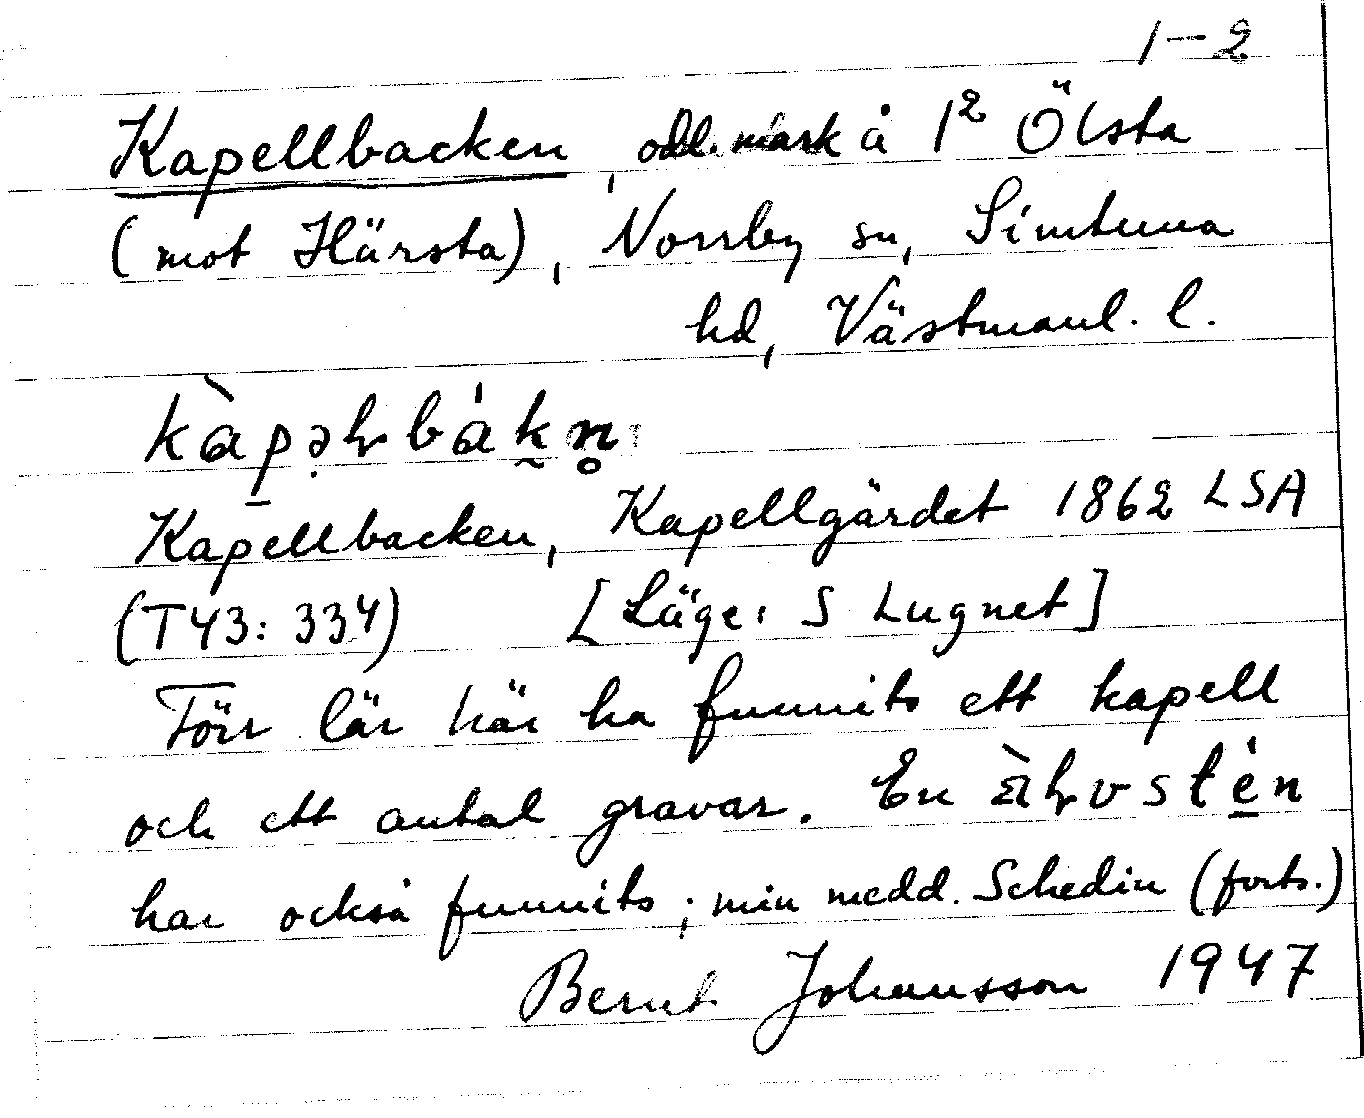 1-2
Kapellbacken, odl. mark å 1² Ölsta
(mot Härsta), Norrby sn, Simtuna
hd, Västmanl. l.
Kapellbacken, Kapellgärdet 1862 LSA
(T43: 334) [Läge: S Lugnet]
Förr lär här ha funnits ett kapell
och ett antal gravar. En
har också funnits; min medd. Schedin (forts.)
Bernt Johansson 1947